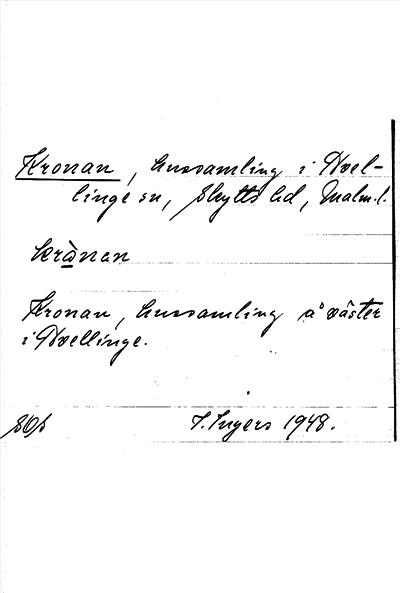 Kronan, hussamling i Hvel-
linge sn, Skytts hd, Malm. l.
krånan
Kronan, hussamling å väster
i Hvellinge.
SOſs I. Ingers 1948.